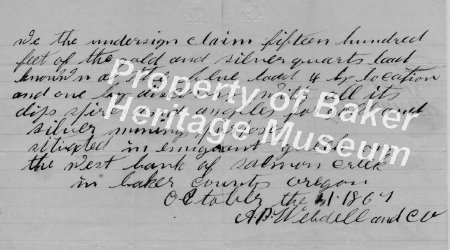 we the undersign claim fifteen hundred
feet of the gold and silver quarts lead
known as the blue 4 by location
and one by with all its
dips spirs and angles for gold and
silver mining
sittiated in emigrant gulch
the West bank of salmon creek
in baker county oregon
October the 1867
and co
Property of Baker
Heritage Museum